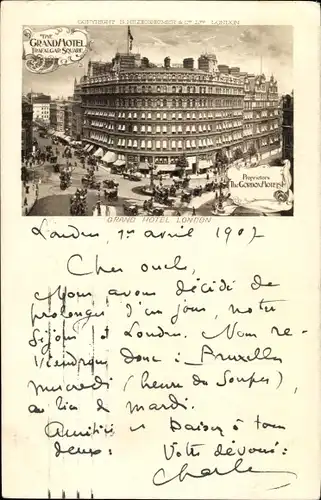 COPYRIGHT D. HEZZONSMIDT & Co LTD LONDON
THE
GRAND HOTEL
TRAFALGAR SQUARE
Proprietors
THE GORDON HOTELS LD
GRAND HOTEL LONDON
Londres, 1er avril 1907
Cher oncle,
Nous avons décidé de
prolonger d'un jour, notre
séjour à Londres. Nous re-
viendrons donc à Bruxelles
mercredi (heure du souper),
au lieu de mardi.
Amitiés et baisers à tous
deux.
Votre dévoué:
Charles